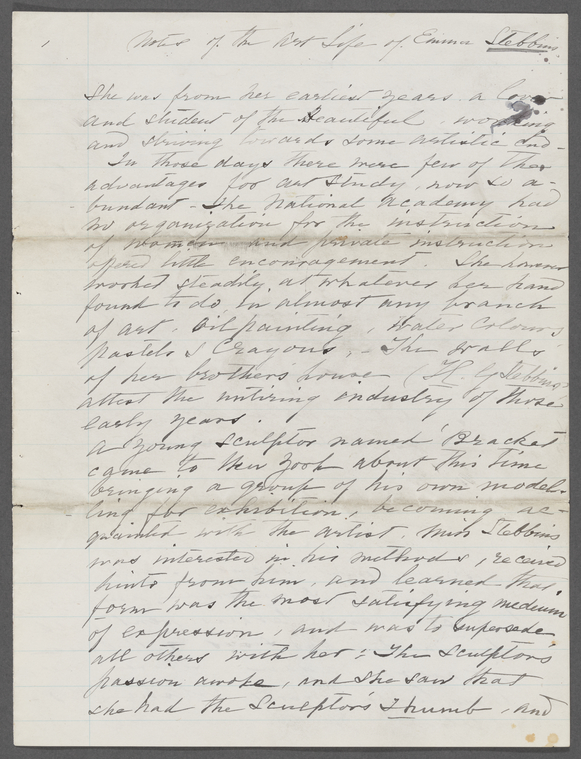 1
Notes of the Art Life of Emma Stebbins
She was from her earliest years a lover
and student of the Beautiful, working
and striving towards some artistic end.
In those days there were few of the
advantages for art study, now so a-
bundant - The National Academy had
no organization for the instruction
of women and private instruction
offered little encouragement. She however
worked steadily, at whatever her hand
found to do, in almost any branch
of art, oil painting, water colours,
pastels & Crayons, - The walls
of her brothers house (H. G Stebbins)
attest the untiring industry of those
early years.
A young sculptor named Bracket
came to New York about this time
bringing a group of his own model-
ling for exhibition, becoming ac-
quainted with the artist, Miss Stebbins
was interested in his methods, received
hints from him, and learned that
form was the most satisfying medium
of expression, and was to supersede
all others with her: The Sculptors
passion awoke, and she saw that
she had the Sculptor's Thumb, and